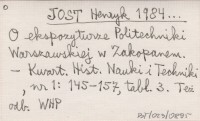 JOST Henryk 1984...
O ekspozyturze Politechniki
Warszawskiej w Zakopanem.
— Kwart. Hist. Nauki i Techniki
, nr 1: 145-157, tabl. 3. Też
odb. WHP